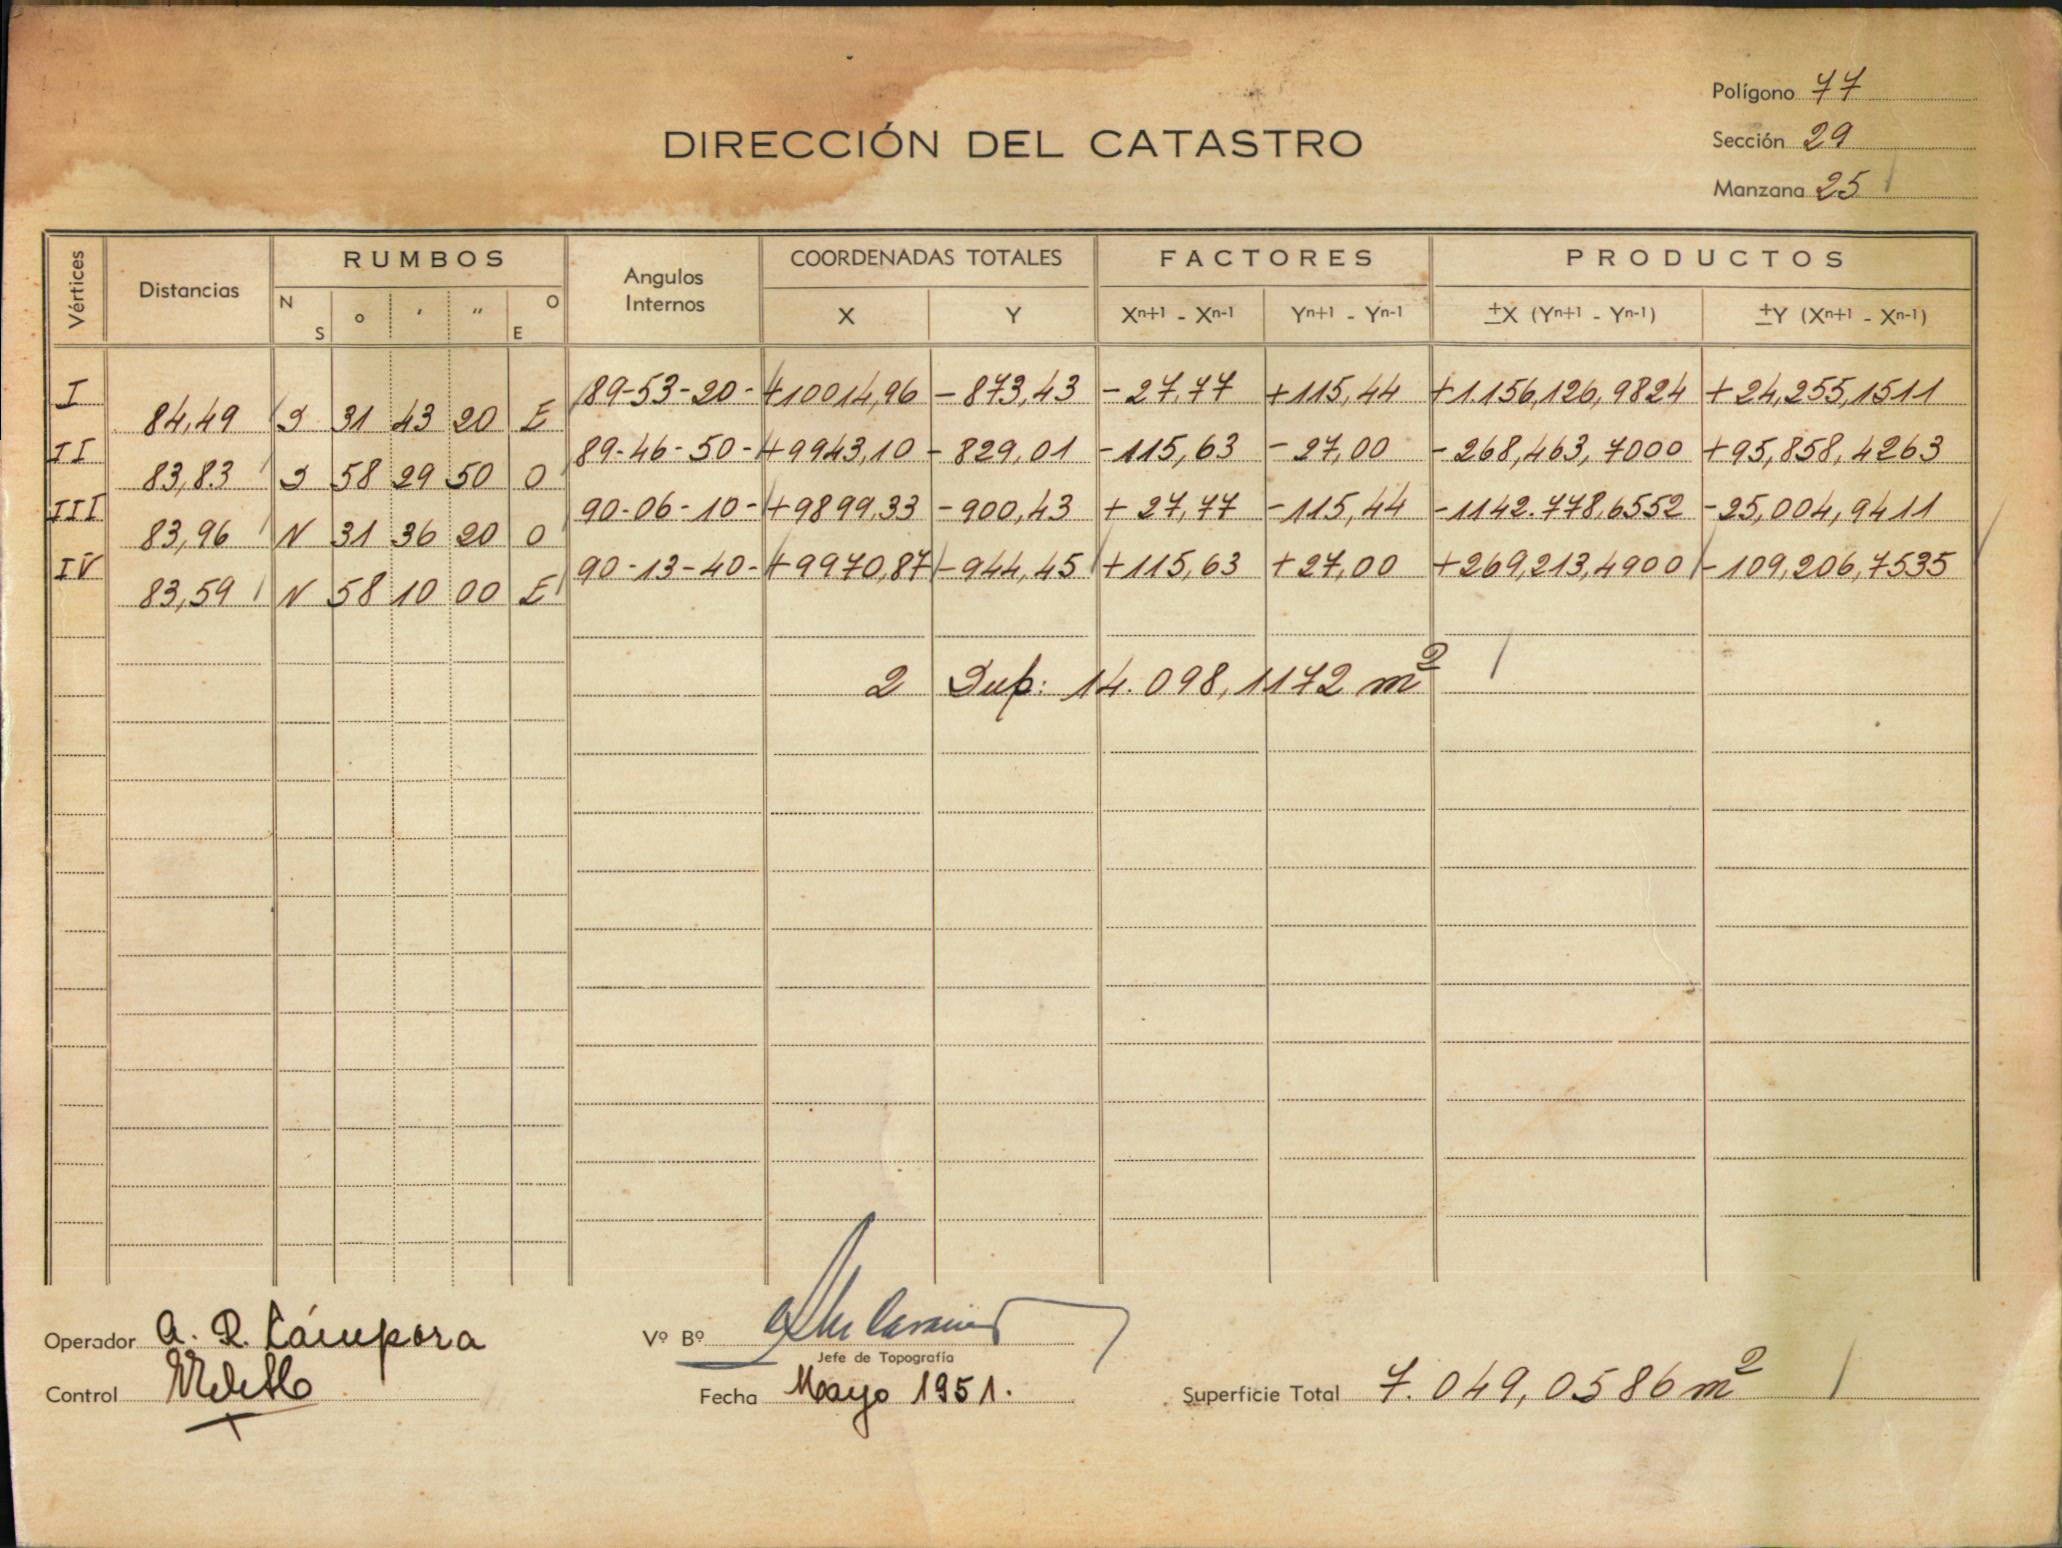 Polígono 77
DIRECCIÓN DEL CATASTRO
Sección 29
Manzana 25
Vértices Distancias RUMBOS Angulos Internos COORDENADAS TOTALES FACTORES PRODUCTOS
N S o ' " O E X Y Xn+1 - Xn-1 Yn+1 - Yn-1 ±X (Yn+1 - Yn-1) ±Y (Xn+1 - Xn-1)
I 89-53-20- +10014,96 -873,43 -27,77 +115,44 +1.156,126,9824 +24,255,1511
84,49 S 31 43 20 E
II 89-46-50- +9943,10 -829,01 -115,63 -27,00 -268,463,7000 +95,858,4263
83,83 S 58 29 50 O
III 90-06-10- +9899,33 -900,43 +27,77 -115,44 -1142.778,6552 -25,004,9411
83,96 N 31 36 20 O
IV 90-13-40- +9970,87 -944,45 +115,63 +27,00 +269,213,4900 -109,206,7535
83,59 N 58 10 00 E
2 Sup: 14.098,1172 m²
Operador A. R. Cámpora Vº Bº
Jefe de Topografía
Control Fecha Mayo 1951. Superficie Total 7.049,0586 m²